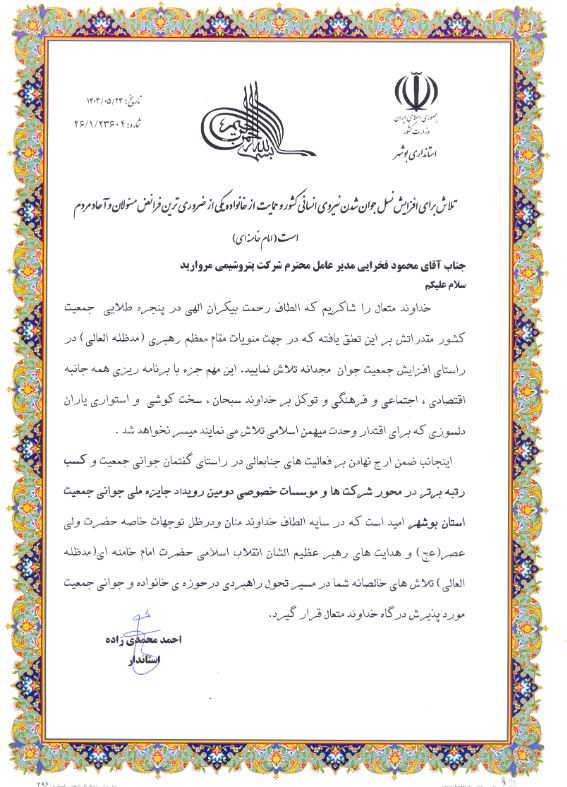 جمهوری اسلامی ایران
وزارت کشور
استانداری بوشهر
بسم الله الرحمن الرحیم
تاریخ: ۱۴۰۳/۰۵/۲۳
شماره: ۲۶/۱/۲۳۶۰۴
تلاش برای افزایش نسل جوان شدن نیروی انسانی کشور و حمایت از خانواده یکی از ضروری ترین فرائض مسئولان و آحاد مردم
است (امام خامنه ای)
جناب آقای محمود فخرایی مدیر عامل محترم شرکت پتروشیمی مروارید
سلام علیکم
خداوند متعال را شاکریم که الطاف رحمت بیکران الهی در پنجره طلایی جمعیت
کشور مقدراتش بر این تعلق یافته که در جهت منویات مقام معظم رهبری (مدظله العالی) در
راستای افزایش جمعیت جوان مجدانه تلاش نمایید. این مهم جزء با برنامه ریزی همه جانبه
اقتصادی ، اجتماعی و فرهنگی و توکل بر خداوند سبحان ، سخت کوشی و استواری یاران
دلسوزی که برای اقتدار وحدت میهمن اسلامی تلاش می نمایند میسر نخواهد شد .
اینجانب ضمن ارج نهادن بر فعالیت های جنابعالی در راستای گفتمان جوانی جمعیت و کسب
رتبه برتر در محور شرکت ها و موسسات خصوصی دومین رویداد جایزه ملی جوانی جمعیت
استان بوشهر امید است که در سایه الطاف خداوند منان ودرظل توجهات خاصه حضرت ولی
عصر(عج) و هدایت های رهبر عظیم الشان انقلاب اسلامی حضرت امام خامنه ای(مدظله
العالی) تلاش های خالصانه شما در مسیر تحول راهبردی درحوزه ی خانواده و جوانی جمعیت
مورد پذیرش درگاه خداوند متعال قرار گیرد.
احمد محمدی زاده
استاندار
۲۹۶